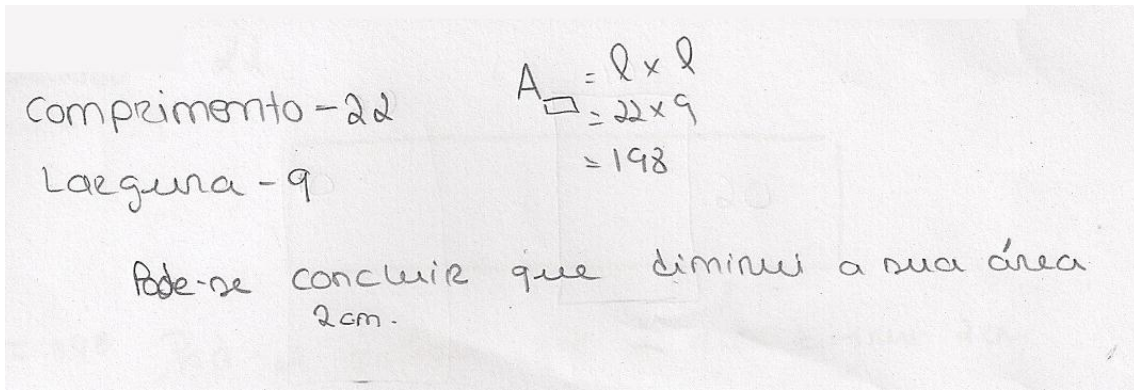 Comprimento - 22
Largura - 9
A▭ = l x l
= 22 x 9
= 198
Pode-se concluir que diminui a sua área
2 cm.